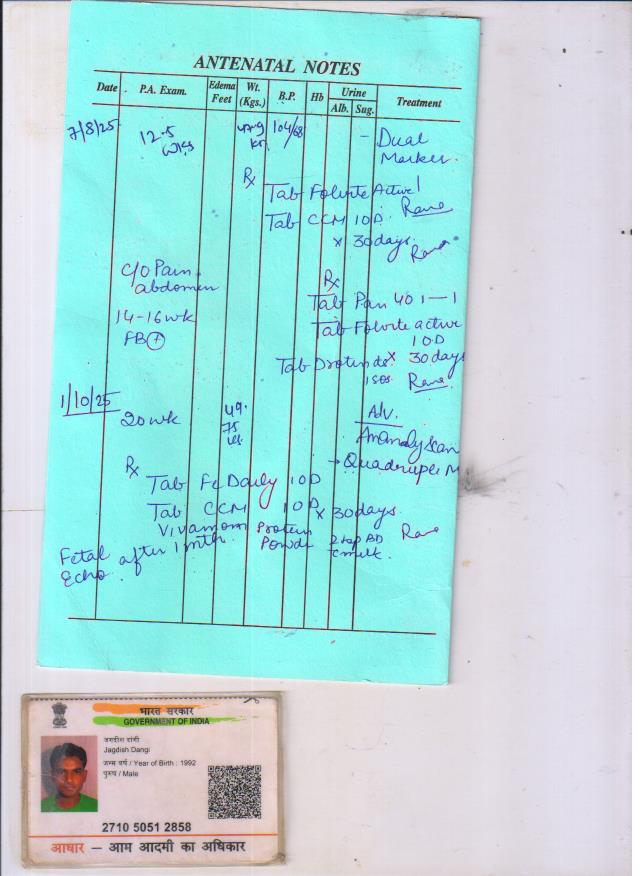 ANTENATAL NOTES
Date P.A. Exam. Edema Feet Wt. (Kgs.) B.P. Hb Urine Alb. Sug. Treatment
7/8/25 12-5 wks 104/68 - Dual Marker
Rx
Tab Folvite Active 1
Tab CCM 1OD
x 30 days
C/O Pain abdomen
Rx
Tab Pan 40 1-1
14-16wk
Tab Folvite active 1OD
FB+
x 30 days
1 SOS
1/10/25 20 wk 49. Adv.
Anomaly scan
→ Quadruple M
Rx
Tab Fe Daily 1OD
Tab CCM 1OD x 30 days
Protein Powder BD
Fetal Echo after 1 mth.
भारत सरकार
GOVERNMENT OF INDIA
जगदीश दांगी
Jagdish Dangi
जन्म वर्ष / Year of Birth : 1992
पुरुष / Male
2710 5051 2858
आधार – आम आदमी का अधिकार